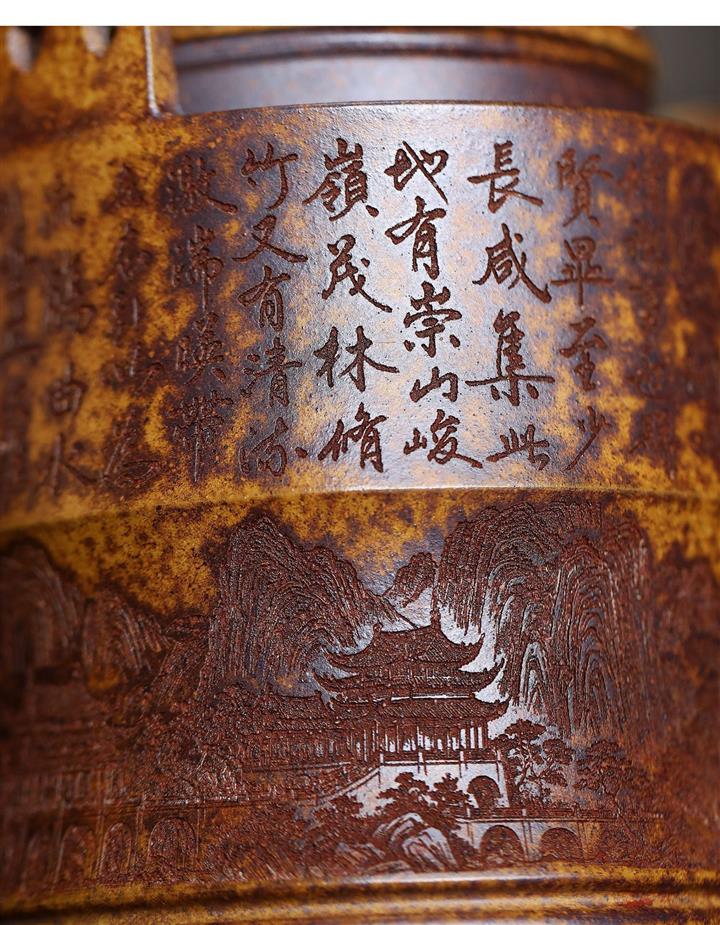 賢畢至少
長咸集此
地有崇山峻
嶺茂林脩
竹又有清流
激湍暎帶
左右引以為
流觴曲水